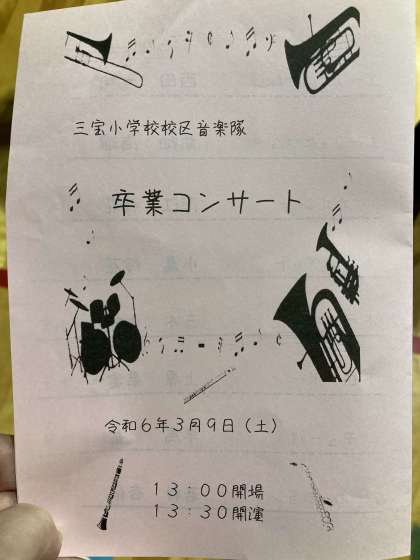 三宝小学校校区音楽隊
卒業コンサート
令和6年3月9日（土）
13：00開場
13：30開演